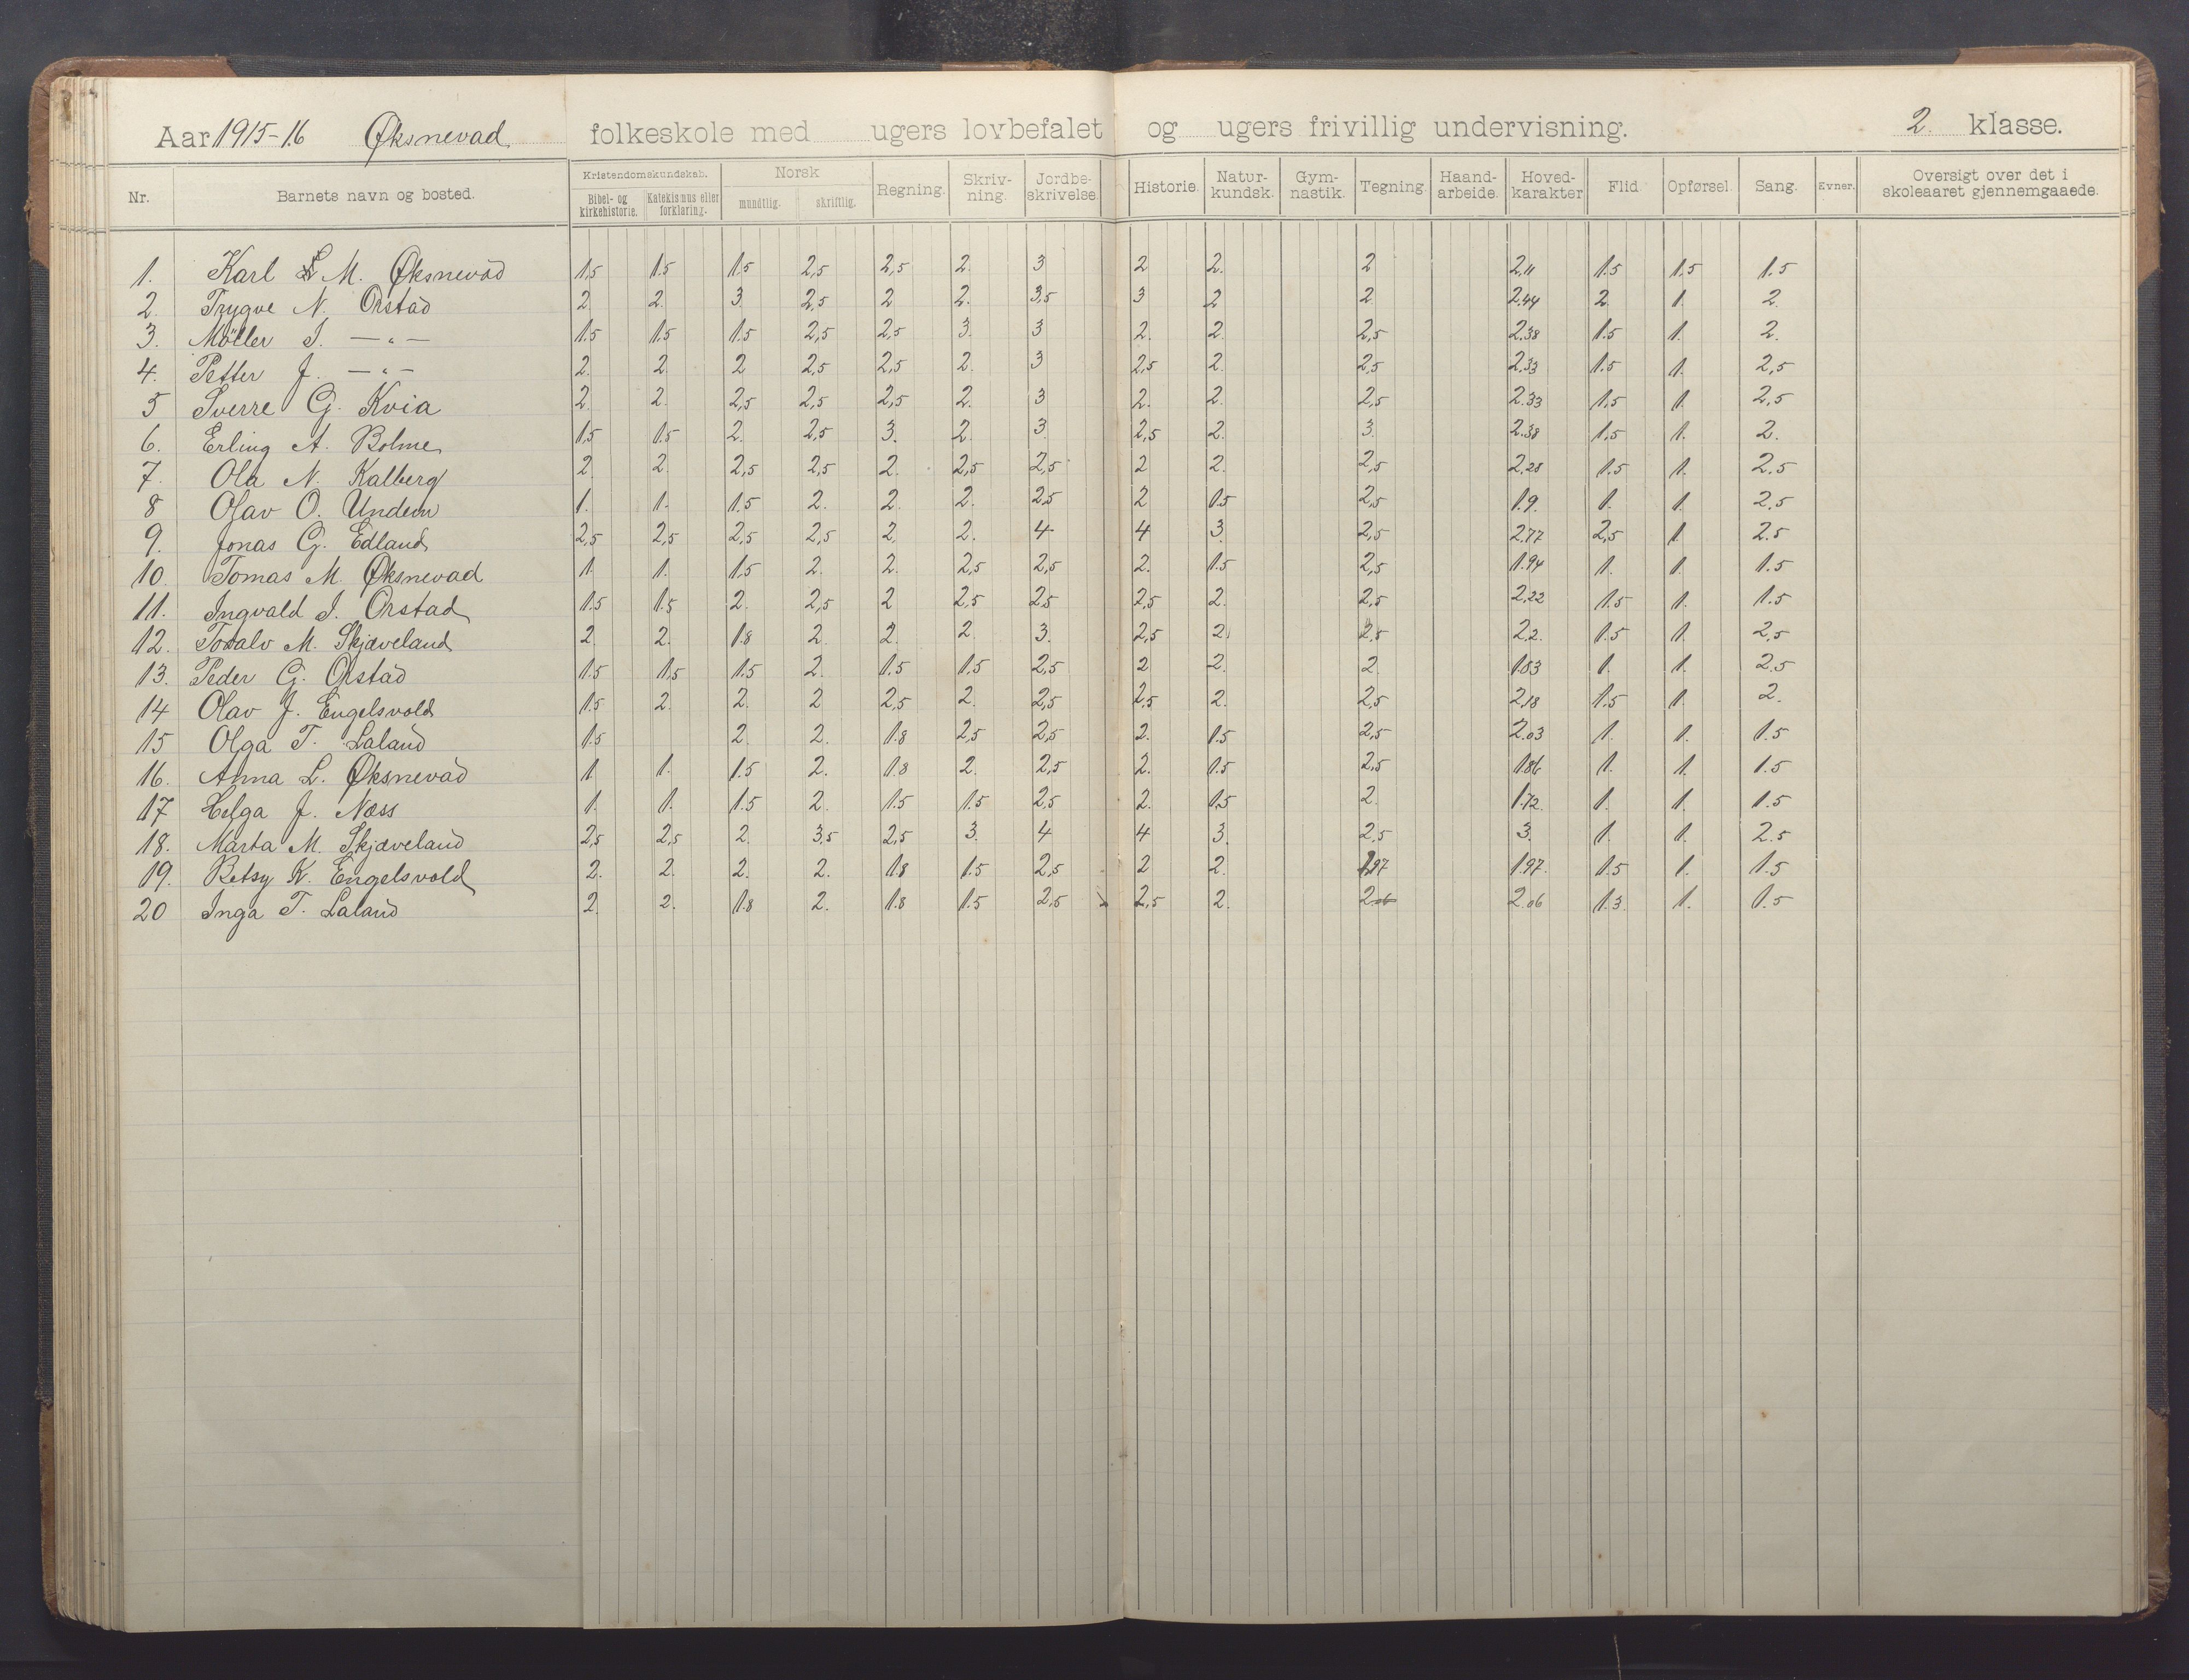 Aar 1915-16 Øksnevad folkeskole med ugers lovbefalet og ugers frivillig undervisning. 2. klasse.
Nr. Barnets navn og bosted. Kristendomskundskab. Bibel- og kirkehistorie. Katekismus eller forklaring. Norsk mundtlig. skriftlig. Regning. Skriv-ning. Jordbe-skrivelse. Historie. Natur-kundsk. Gym-nastik. Tegning. Haand-arbeide. Hoved-karakter Flid. Opførsel. Sang. Evner. Oversigt over det i skoleaaret gjennemgaaede.
1. Karl L M. Øksnevad 1,5 1.5 1.5 2,5 2,5 2. 3 2 2. 2 2,11 1.5 1,5 1.5
2. Trygve N. Orstad 2. 2. 3. 2,5 2 2. 3,5 3 2 2. 2.44 2. 1. 2.
3. Möller I. —"— 1.5 1.5 1.5 2,5 2,5 3. 3 2. 2. 2,5 2.38 1.5 1. 2.
4. Petter J. —"— 2. 2. 2 2,5 2,5 2. 3 2,5 2. 2,5 2.33 1.5 1. 2,5
5 Sverre G. Kvia 2. 2. 2,5 2,5 2,5 2. 3 2. 2. 2,5 2.33 1,5 1. 2,5
6. Erling A. Bolme 1,5 1.5 2. 2,5 3. 2. 3. 2,5 2. 3. 2.38 1,5 1. 2.
7. Ola N. Kalberg 2 2. 2,5 2,5 2. 2,5 2,5 2 2. 2,5 2,28 1.5 1. 2.5
8 Olav O. Undem 1. 1. 1.5 2. 2. 2. 2,5 2 1.5 2,5 1.9. 1. 1. 2,5
9. Jonas G. Edland 2,5 2,5 2,5 2,5 2. 2. 4 4 3. 2,5 2.77 2,5 1. 2.5
10. Tomas M. Øksnevad 1. 1. 1,5 2. 2. 2,5 2,5 2. 1.5 2,5 1.94 1. 1. 1.5
11. Ingvald I. Orstad 1.5 1.5 2. 2,5 2 2,5 2,5 2,5 2. 2,5 2,22 1.5 1. 1.5
12. Todalv M. Skjæveland 2. 2. 1.8 2. 2. 2. 3. 2,5 2. 2,5 2,2. 1.5 1. 2,5
13. Peder G. Orstad 1.5 1,5 1.5 2. 1.5 1,5 2,5 2 2. 2. 1.83 1. 1. 2.5
14 Olav J. Engelsvold 1.5 2. 2. 2 2,5 2. 2,5 2,5 2. 2,5 2,18 1.5 1. 2.
15 Olga T. Laland 1.5 2. 2. 1.8 2,5 2,5 2. 1.5 2,5 2.03 1. 1. 1.5
16. Anna L. Øksnevad 1. 1. 1.5 2. 1.8 2. 2,5 2. 1.5 2,5 1.86 1. 1. 1.5
17 Helga J. Næss 1. 1. 1.5 2. 1.5 1.5 2,5 2. 1.5 2. 1.72. 1. 1. 1.5
18. Marta M. Skjæveland 2,5 2,5 2. 3.5 2,5 3. 4 4 3. 2,5 3. 1. 1. 2.5
19. Betsy K. Engelsvold 2. 2. 2. 2. 1.8 1.5 2,5 2 2. 1.97 1.97. 1.5 1. 1.5
20 Inga T. Laland 2. 2. 1.8 2. 1.8 1.5 2,5 2,5 2. 2.06 2.06 1.3. 1. 1.5